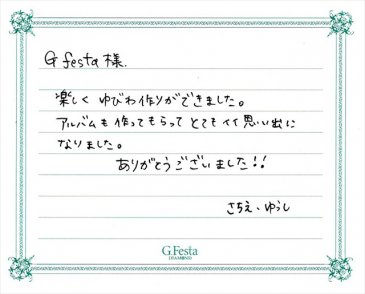 G festa 様.
楽しく ゆびわ作りができました。
アルバムも 作ってもらって とてもイイ思い出に
なりました。
ありがとうございました!!
さちえ・ゆうし
G.Festa
DIAMOND